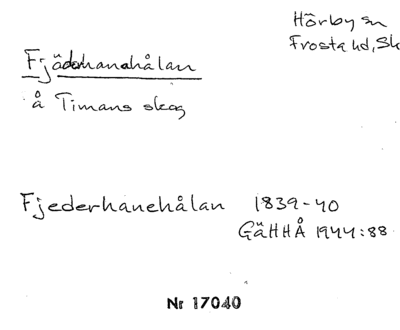 Hörby sn
Frosta hd, Sk
Fjäderhanehålan
å Timans skog
Fjederhanehålan 1839-40
GäHHÅ 1944:88
Nr 17040